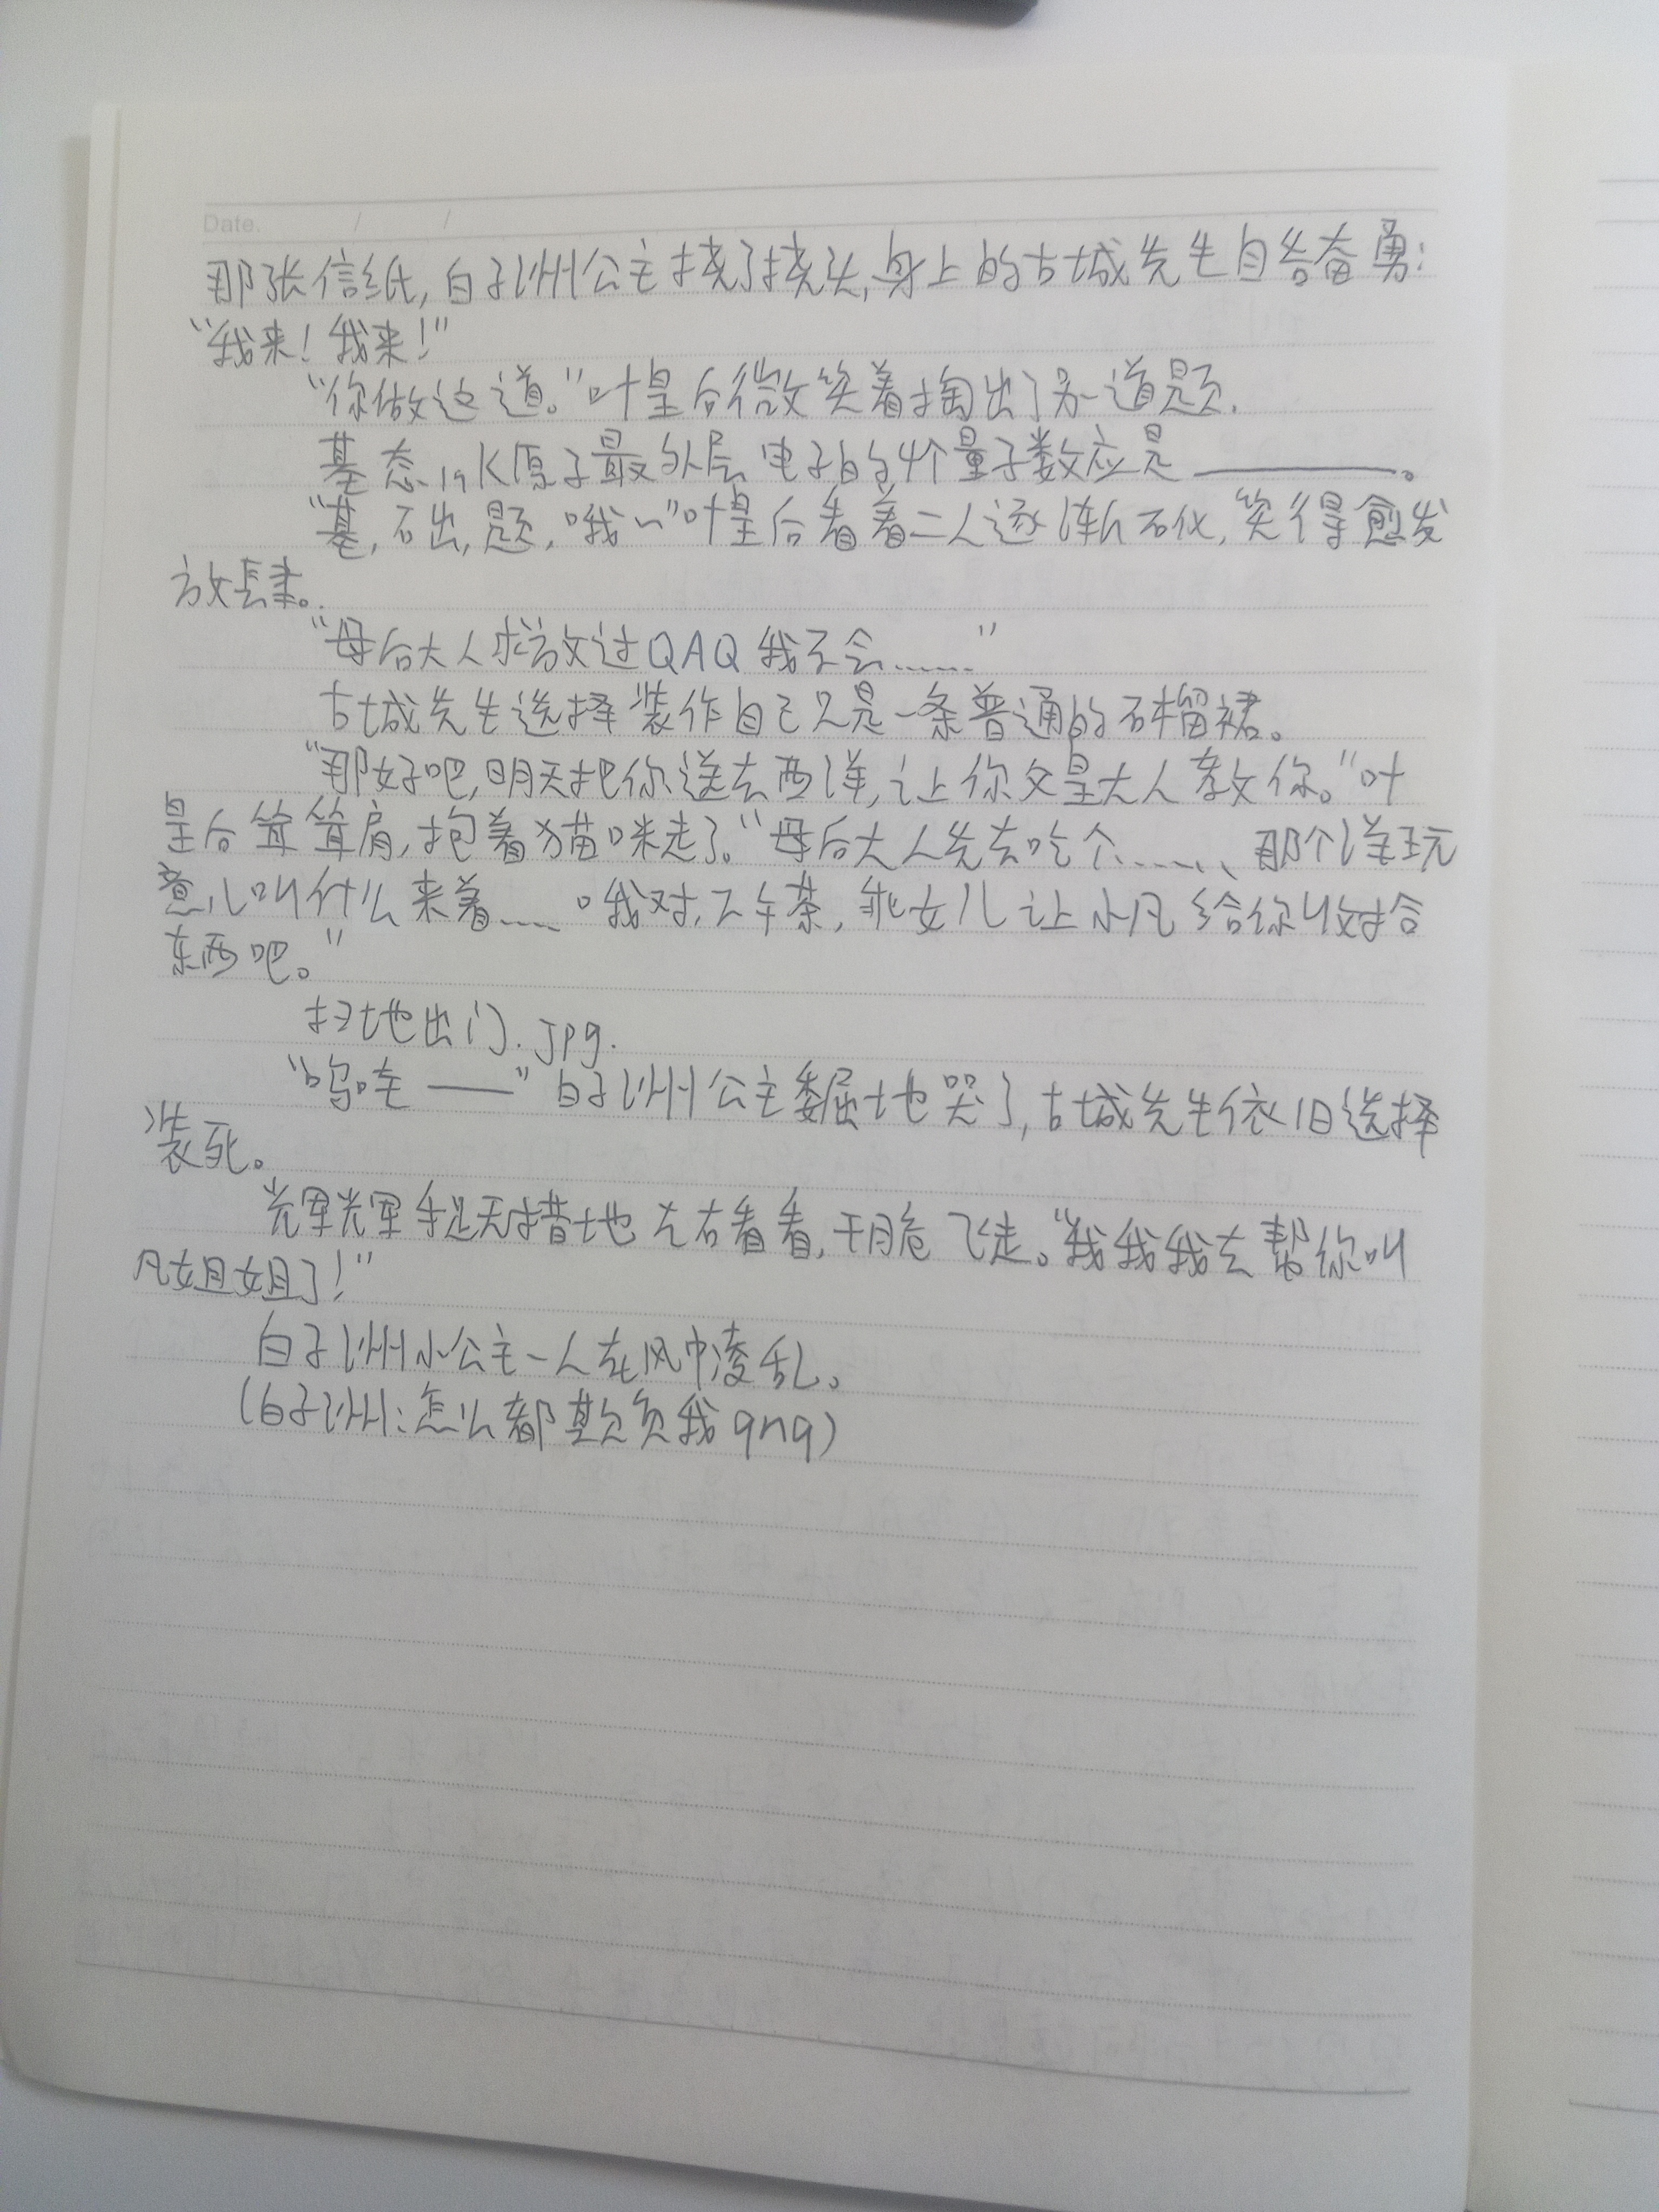 Date. / /
那张信纸,白子洲公主挠了挠头,身上的古城先生自告奋勇:
“我来!我来!”
“你做这道。”叶皇后微笑着掏出了另一道题.
基态19K原子最外层电子的4个量子数应是________。
“基,石出,题,哦~”叶皇后看着二人逐渐石化,笑得愈发
放肆。
“母后大人求放过QAQ我不会……”
古城先生选择装作自己只是一条普通的石榴裙。
“那好吧,明天把你送去西洋,让你父皇大人教你。”叶
皇后耸耸肩,抱着猫咪走了。“母后大人先去吃个……、那个洋玩
意儿叫什么来着……哦对,下午茶,乖女儿让小凡给你收拾
东西吧。”
扫地出门.jpg.
“呜哇——”白子洲公主委屈地哭了,古城先生依旧选择
装死。
光军光军手足无措地左右看看,干脆飞走。“我我我去帮你叫
凡姐姐了!”
白子洲小公主一人在风中凌乱。
(白子洲:怎么都欺负我qnq)